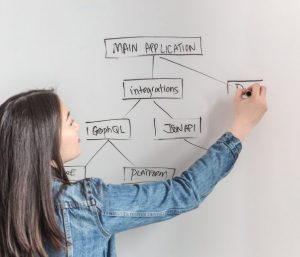 MAIN APPLICATION
integrations
GRAPHQL
JSON API
PLATFORM